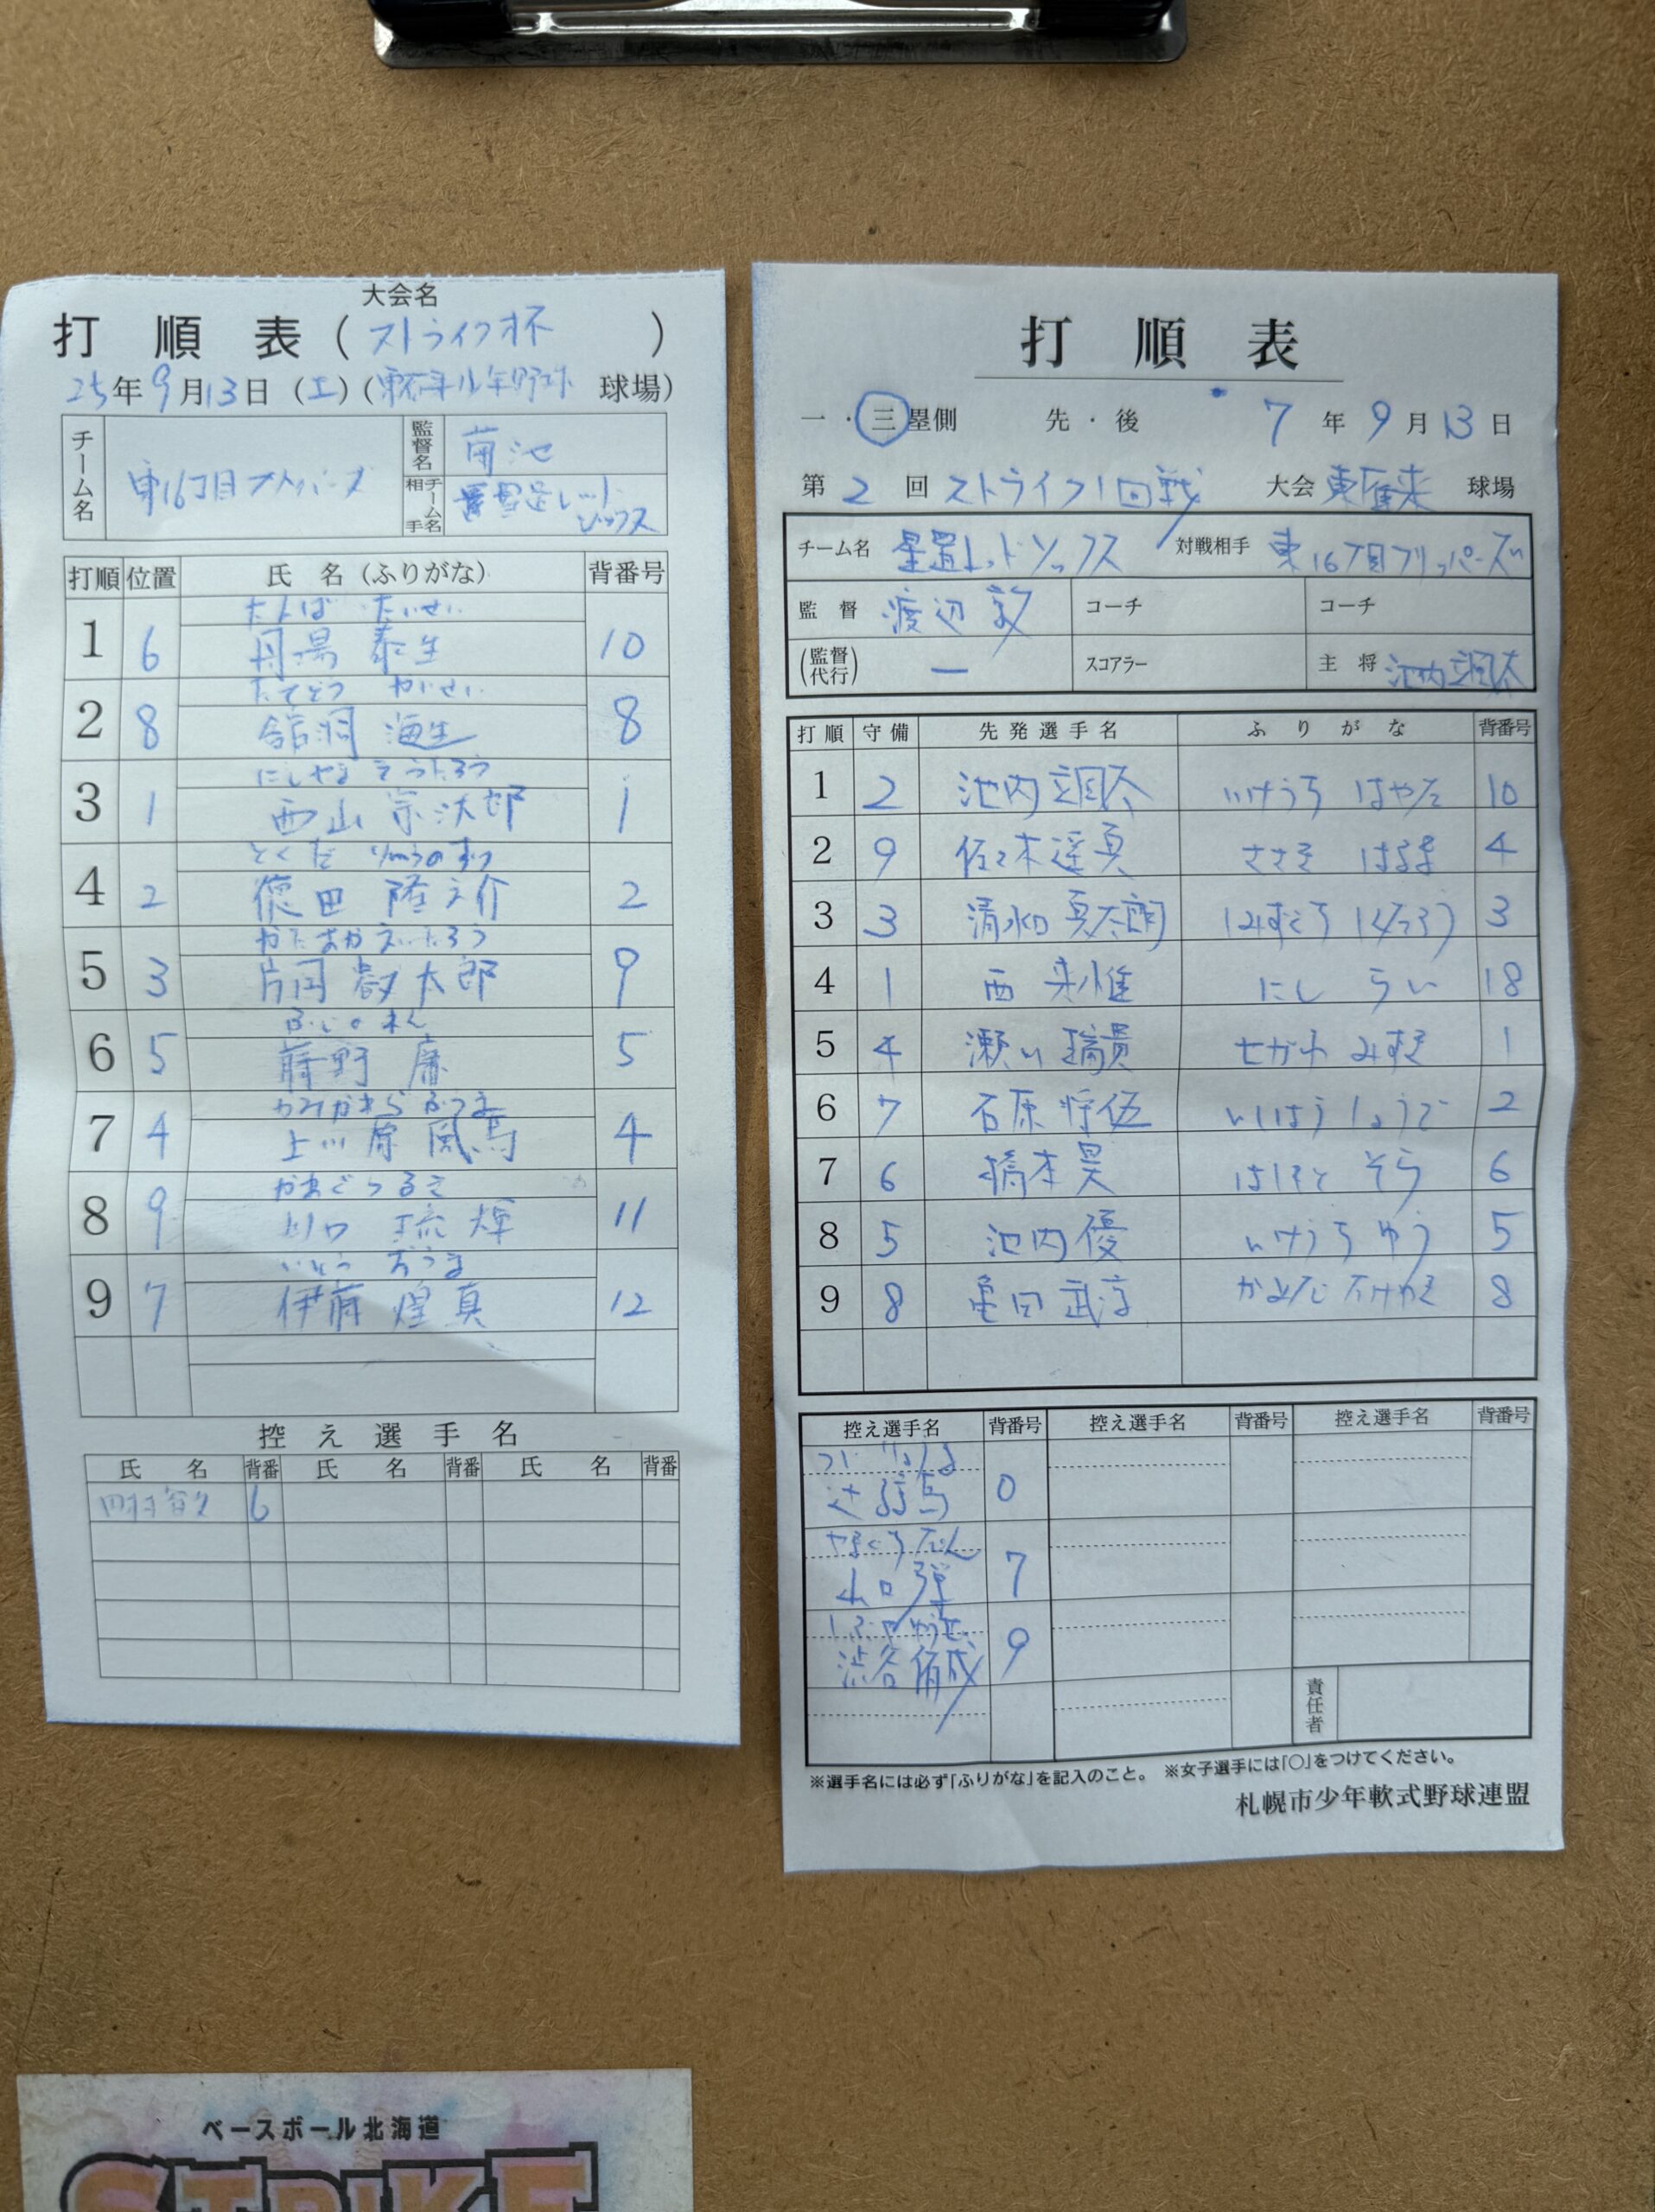 大会名
打順表(ストライク杯)
25年9月13日(土)(東雁来少年野球 球場)
チーム名 東16丁目フリッパーズ 監督名 菊池
相手チーム名 星置レッドソックス
打順 位置 氏名(ふりがな) 背番号
たんば たいせい
1 6 丹場 泰生 10
たてどう かいせい
2 8 舘洞 海生 8
にしやま そうたろう
3 1 西山 宗汰郎 1
とくだ りゅうのすけ
4 2 徳田 隆之介 2
かたおか えいたろう
5 3 片岡 叡太郎 9
ふじの れん
6 5 藤野 廉 5
かみかわら ふうま
7 4 上川原 風馬 4
かわぐち るき
8 9 川口 琉輝 11
いとう おうま
9 7 伊藤 煌真 12
控え選手名
氏名 背番 氏名 背番 氏名 背番
6
打順表
一・三塁側 先・後 7年9月13日
第2回ストライク1回戦 大会 東雁来 球場
チーム名 星置レッドソックス 対戦相手 東16丁目フリッパーズ
監督 渡辺 敦 コーチ コーチ
(監督代行) ー スコアラー 主将 池内颯太
打順 守備 先発選手名 ふりがな 背番号
1 2 池内颯太 いけうち はやた 10
2 9 佐々木遥真 ささき はるま 4
3 3 清水口真太朗 しみずぐち しんたろう 3
4 1 西 來惟 にし らい 18
5 4 瀬川 瑞貴 せがわ みずき 1
6 7 石原 将伍 いしはら しょうご 2
7 6 橋本昊 はしもと そら 6
8 5 池内優 いけうち ゆう 5
9 8 亀田 武 かめだ 8
控え選手名 背番号 控え選手名 背番号 控え選手名 背番号
つじ
辻 馬 0
やまぐち だん
山口 弾 7
しぶや ゆうせい
渋谷 侑成 9
責任者
※選手名には必ず「ふりがな」を記入のこと。 ※女子選手には「○」をつけてください。
札幌市少年軟式野球連盟
ベースボール北海道
STRIKE